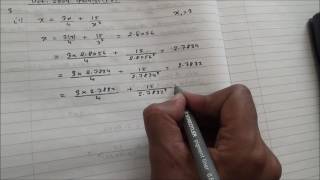 (i) x = 3x/4 + 15/x³ x₁ = 3
x = 3(3)/4 + 15/3³ = 2.8056
= 3 x 2.8056/4 + 15/2.8056³ = 2.7834
= 3 x 2.7834/4 + 15/2.7834³ = 2.7832
= 3 x 2.7832/4 + 15/2.7832³